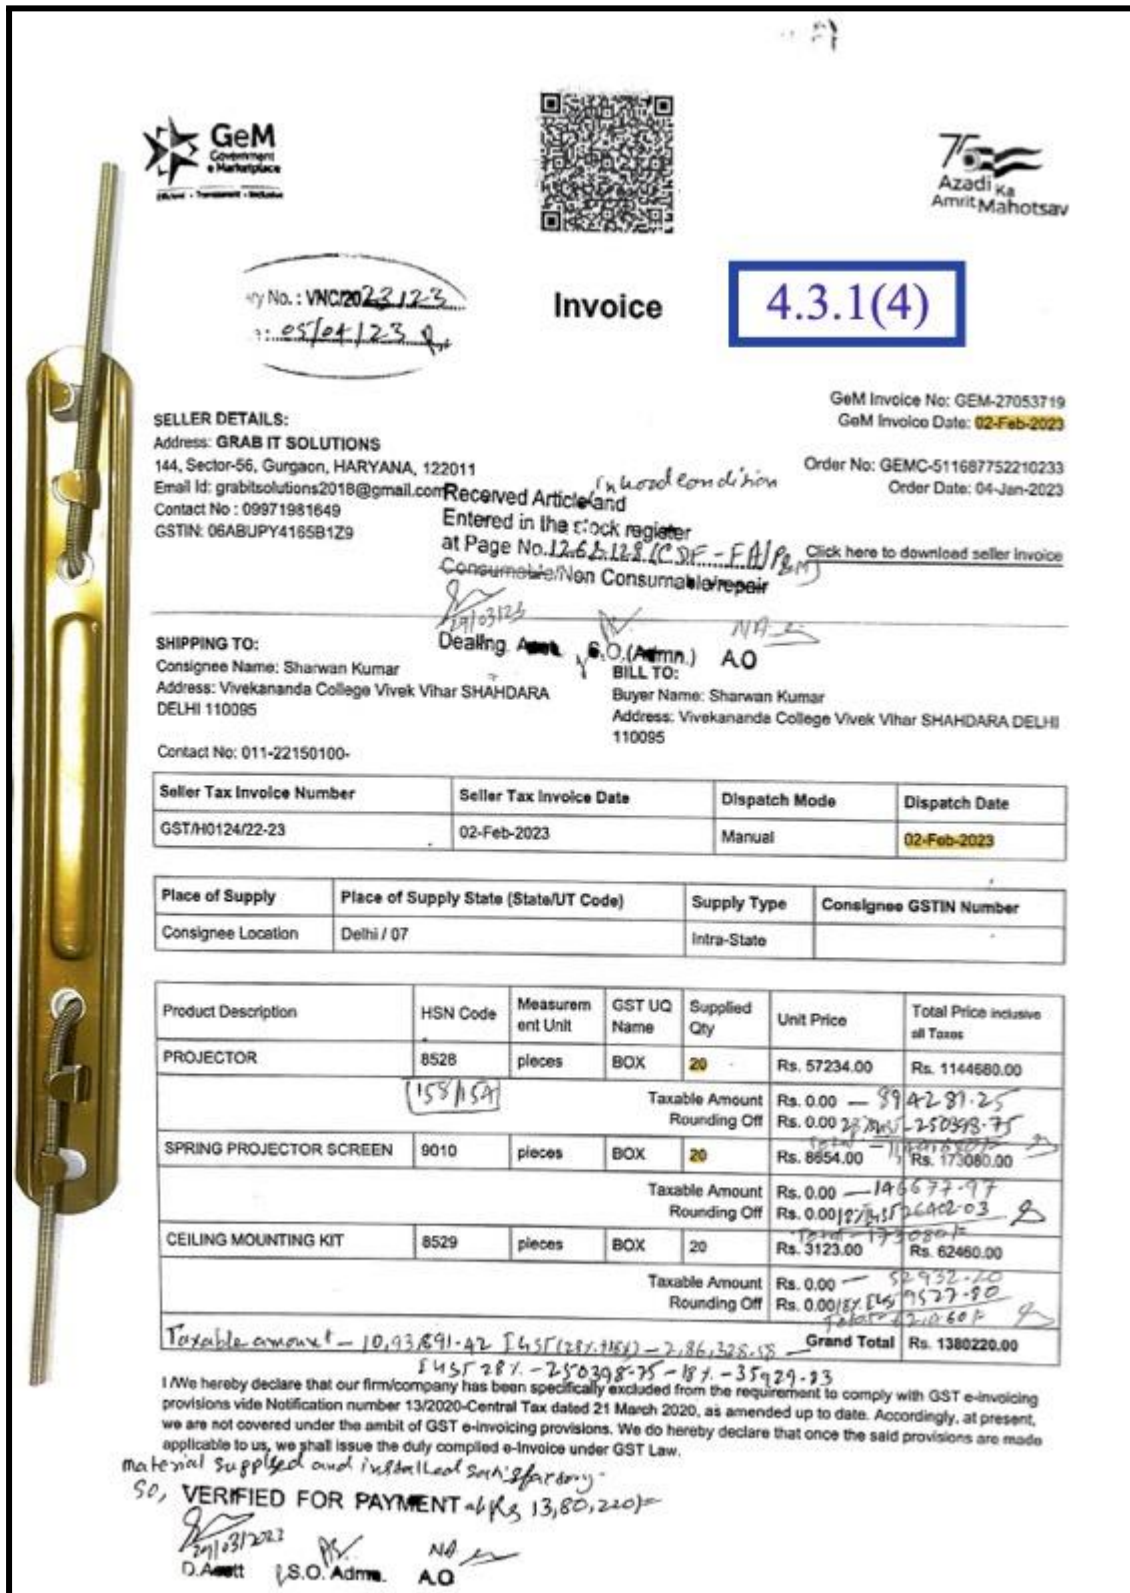 GeM
Government
e Marketplace
Efficient • Transparent • Inclusive
75
Azadi Ka
Amrit Mahotsav
ry No. : VNC/2023/23
: 05/04/23
Invoice
4.3.1(4)
GeM Invoice No: GEM-27053719
GeM Invoice Date: 02-Feb-2023
SELLER DETAILS:
Address: GRAB IT SOLUTIONS
144, Sector-56, Gurgaon, HARYANA, 122011
Email Id: grabitsolutions2018@gmail.com
Contact No : 09971981649
GSTIN: 06ABUPY4165B1Z9
Order No: GEMC-511687752210233
Order Date: 04-Jan-2023
in good condition
Received Article and
Entered in the stock register
at Page No. 126 & 128 (CDF - FA/P&M)
Consumable/Non Consumable/repair
Click here to download seller invoice
29/03/23
NA
Dealing. Asstt. S.O.(Admn.) A.O
SHIPPING TO:
Consignee Name: Sharwan Kumar
Address: Vivekananda College Vivek Vihar SHAHDARA
DELHI 110095
Contact No: 011-22150100-
BILL TO:
Buyer Name: Sharwan Kumar
Address: Vivekananda College Vivek Vihar SHAHDARA DELHI
110095
Seller Tax Invoice Number Seller Tax Invoice Date Dispatch Mode Dispatch Date
GST/H0124/22-23 02-Feb-2023 Manual 02-Feb-2023
Place of Supply Place of Supply State (State/UT Code) Supply Type Consignee GSTIN Number
Consignee Location Delhi / 07 Intra-State
Product Description HSN Code Measurem ent Unit GST UQ Name Supplied Qty Unit Price Total Price inclusive all Taxes
PROJECTOR 8528 pieces BOX 20 Rs. 57234.00 Rs. 1144680.00
158/15A
Taxable Amount Rs. 0.00 — 894281.25
Rounding Off Rs. 0.00 28% IGST - 250398.75
SPRING PROJECTOR SCREEN 9010 pieces BOX 20 Rs. 8654.00 Rs. 173080.00
Taxable Amount Rs. 0.00 — 146677.97
Rounding Off Rs. 0.00 18% IGST 26402.03
Total - 173080/-
CEILING MOUNTING KIT 8529 pieces BOX 20 Rs. 3123.00 Rs. 62460.00
Taxable Amount Rs. 0.00 — 52932.20
Rounding Off Rs. 0.00 18% IGST 9527.80
Total - 62,460/-
Taxable amount - 10,93,891.42 IGST (28%+18%) - 2,86,328.58 Grand Total Rs. 1380220.00
IGST 28% - 250398-75 - 18% - 35929-83
I /We hereby declare that our firm/company has been specifically excluded from the requirement to comply with GST e-invoicing
provisions vide Notification number 13/2020-Central Tax dated 21 March 2020, as amended up to date. Accordingly, at present,
we are not covered under the ambit of GST e-invoicing provisions. We do hereby declare that once the said provisions are made
applicable to us, we shall issue the duly complied e-Invoice under GST Law.
material supplied and installed satisfactory.
So, VERIFIED FOR PAYMENT of Rs 13,80,220/=
29/03/2023
NA
D.Asstt S.O. Admn. A.O